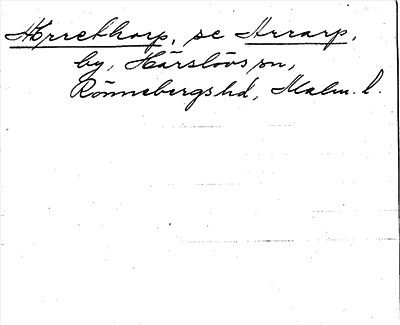 Hörrethorp, se Arrarp,
by, Härslövs sn,
Rönnebergs hd, Malm. l.